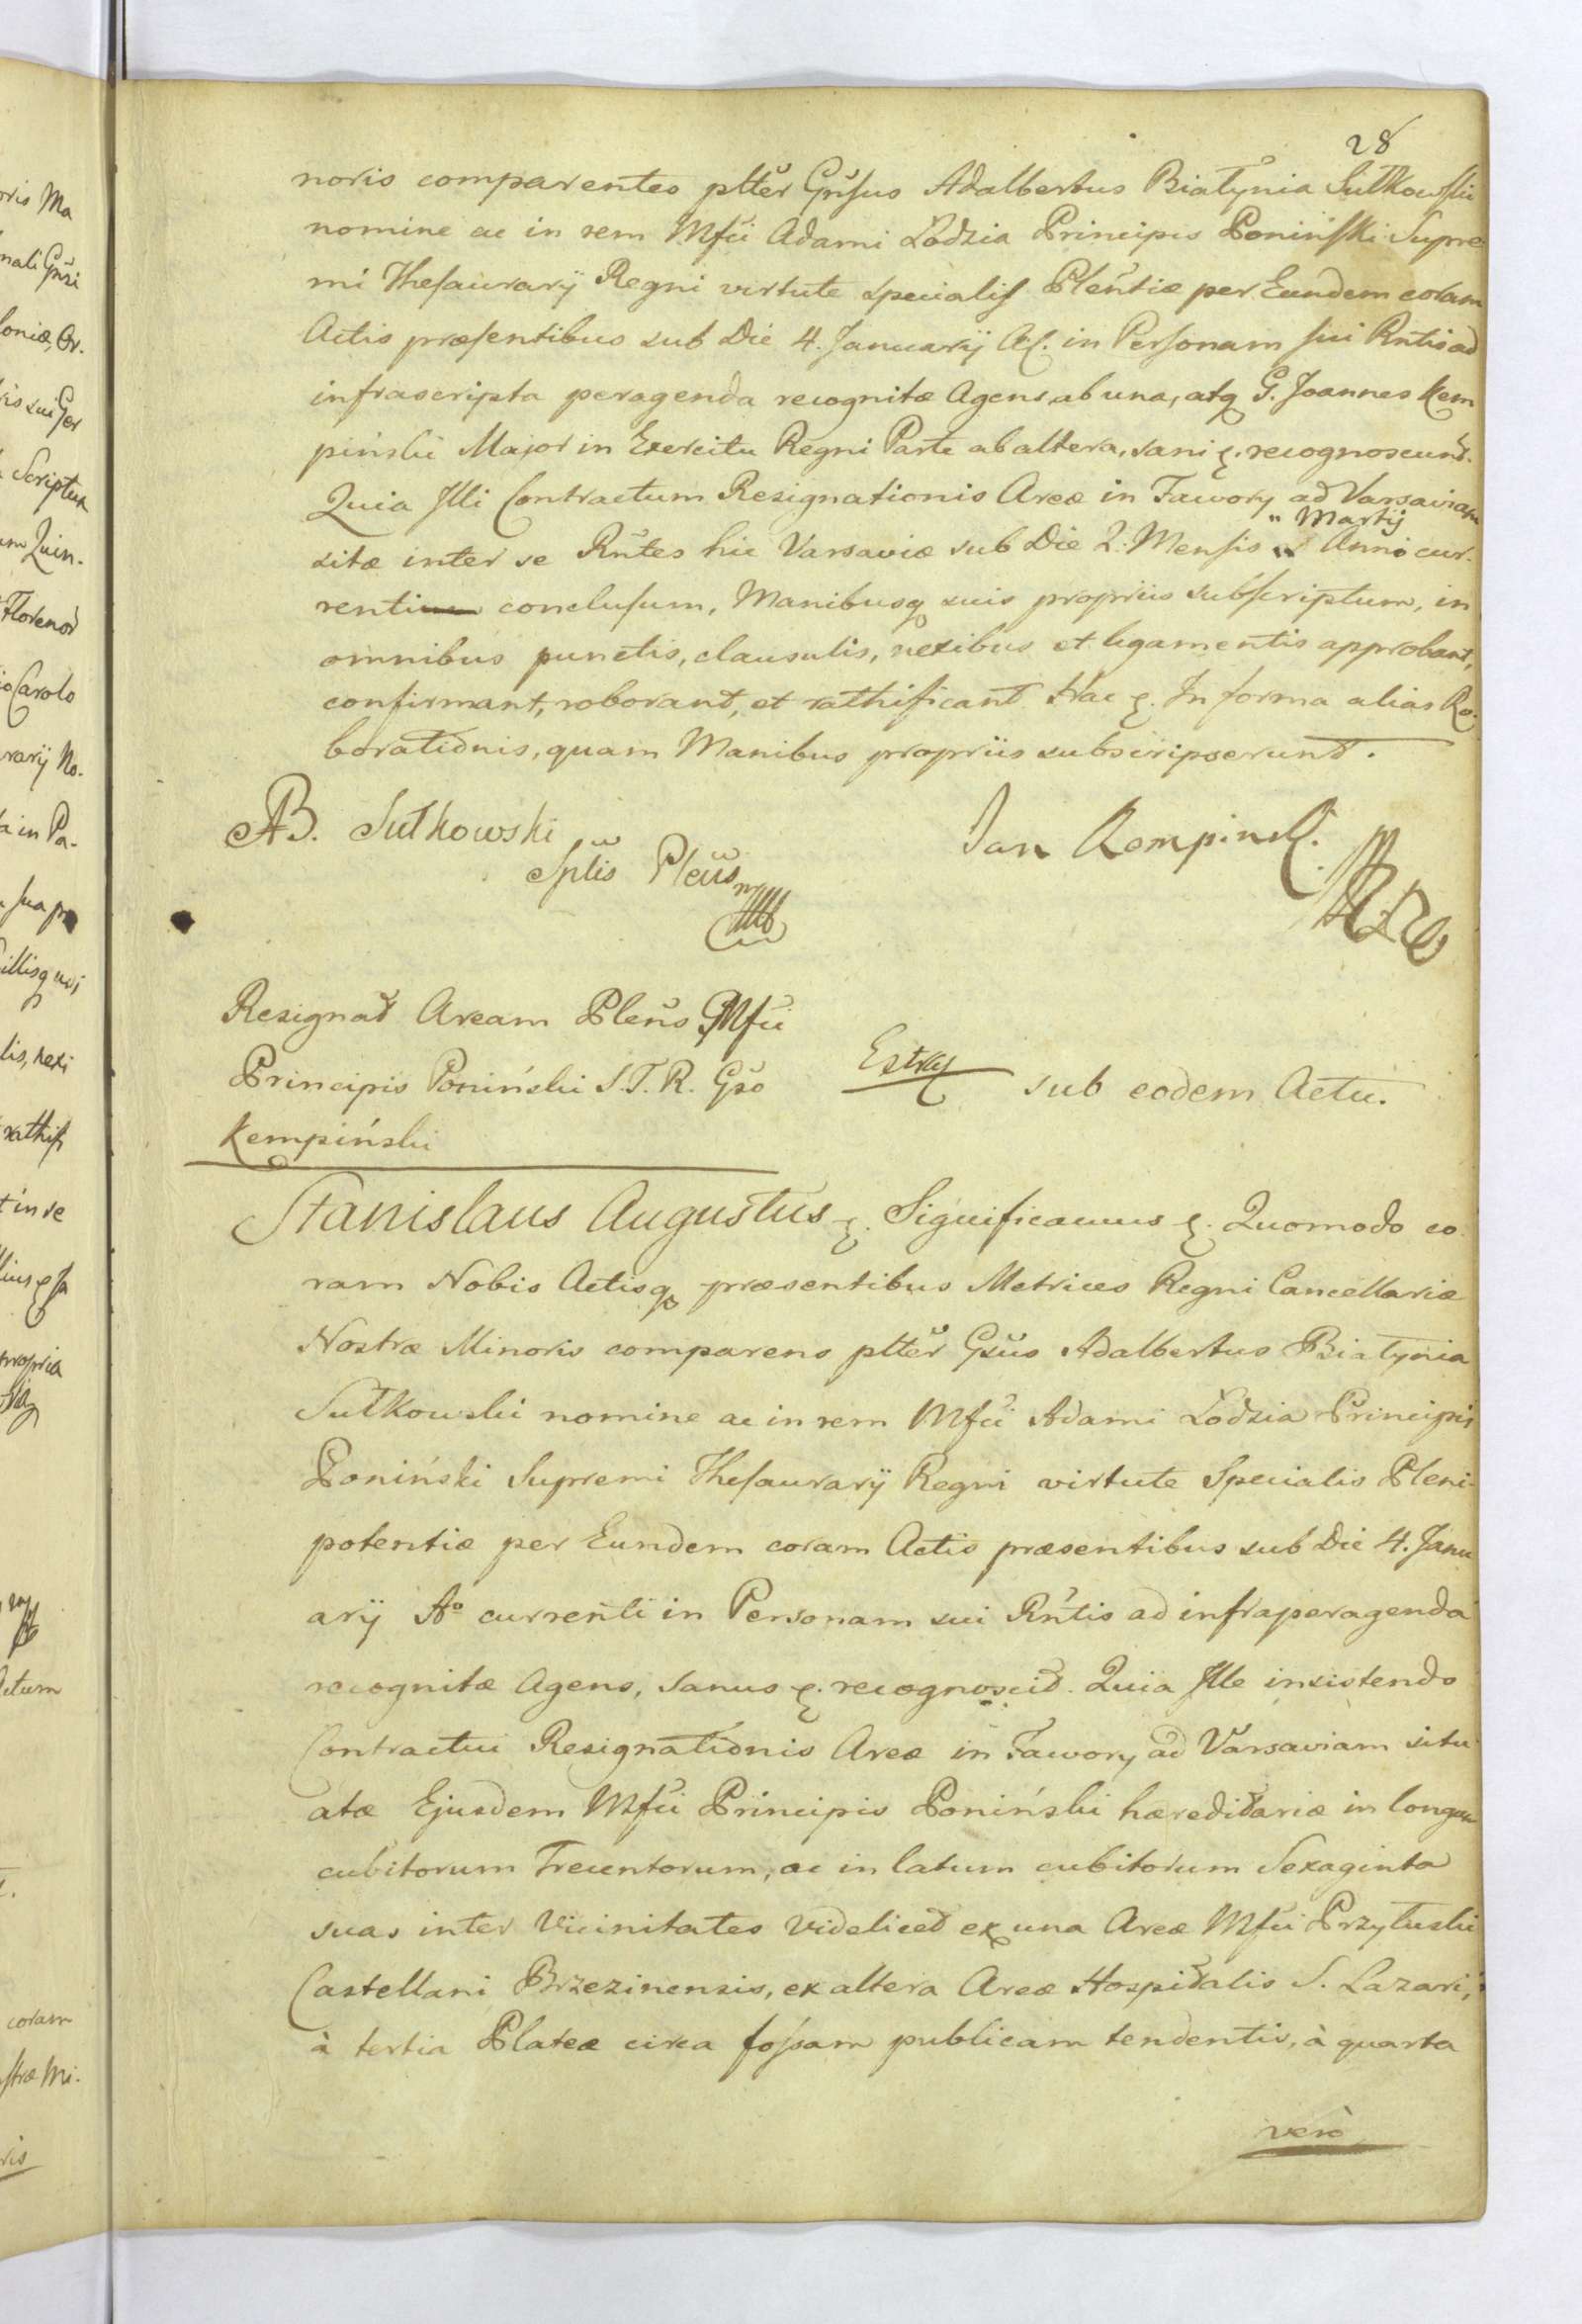 28
noris comparentes pltter Gnsus Adalbertus Białynia Sułkowski
nomine ac in rem Mfci Adami Łodzia Principis Poniński Supre
mi Thesaurarij Regni virtute specialis Plentiæ per Eundem coram
Actis præsentibus sub Die 4. Januarij A.c. in Personam sui Rntis ad
infrascripta peragenda recognitæ Agens, ab una, atq G. Joannes Kem
piński Major in Exercitu Regni Parte ab altera, sani &. recognoscunt.
Quia Illi Contractum Resignationis Areæ in Fawory ad Varsaviam
" Martij
sitæ inter se Rntes hic Varsaviæ sub Die 2. Mensis " Anni cur-
renti conclusum, Manibusq suis propriis subscriptum, in
omnibus punctis, clausulis, nexibus et ligamentis approbant,
confirmant, roborant, et rathificant. Hac &. In forma alias Ro-
borationis, quam Manibus propriis subscripserunt.
AB. Sułkowski
Splis Pleus mp
Jan Kempinski.
Resignat Aream Plens Mfci
Principis Poniński S.T.R. Gso
Kempiński
Extra
sub eodem Actu.
Stanislaus Augustus &. Significamus &. Quomodo co
ram Nobis Actisq præsentibus Metrices Regni Cancellariæ
Nostræ Minoris comparens pltter Gsus Adalbertus Białynia
Sułkowski nomine ac in rem Mfci Adami Łodzia Principis
Poniński Supremi Thesaurarij Regni virtute Specialis Pleni-
potentiæ per Eundem coram Actis præsentibus sub Die 4. Janu
arij Aº currenti in Personam sui Rntis ad infraperagenda
recognitæ Agens, sanus &. recognoscit. Quia Ille insistendo
Contractui Resignationis Areæ in Fawory ad Varsaviam situ
atæ Ejusdem Mfci Principis Poniński hæreditariæ in longum
cubitorum Trecentorum, ac in latum cubitorum Sexaginta
suas inter Vicinitates videlicet ex una Areæ Mfci Przyłuski
Castellani Brzezinensis, ex altera Areæ Hospitalis S. Lazari,
à tertia Plateæ circa fossam publicam tendentis, à quarta
verò